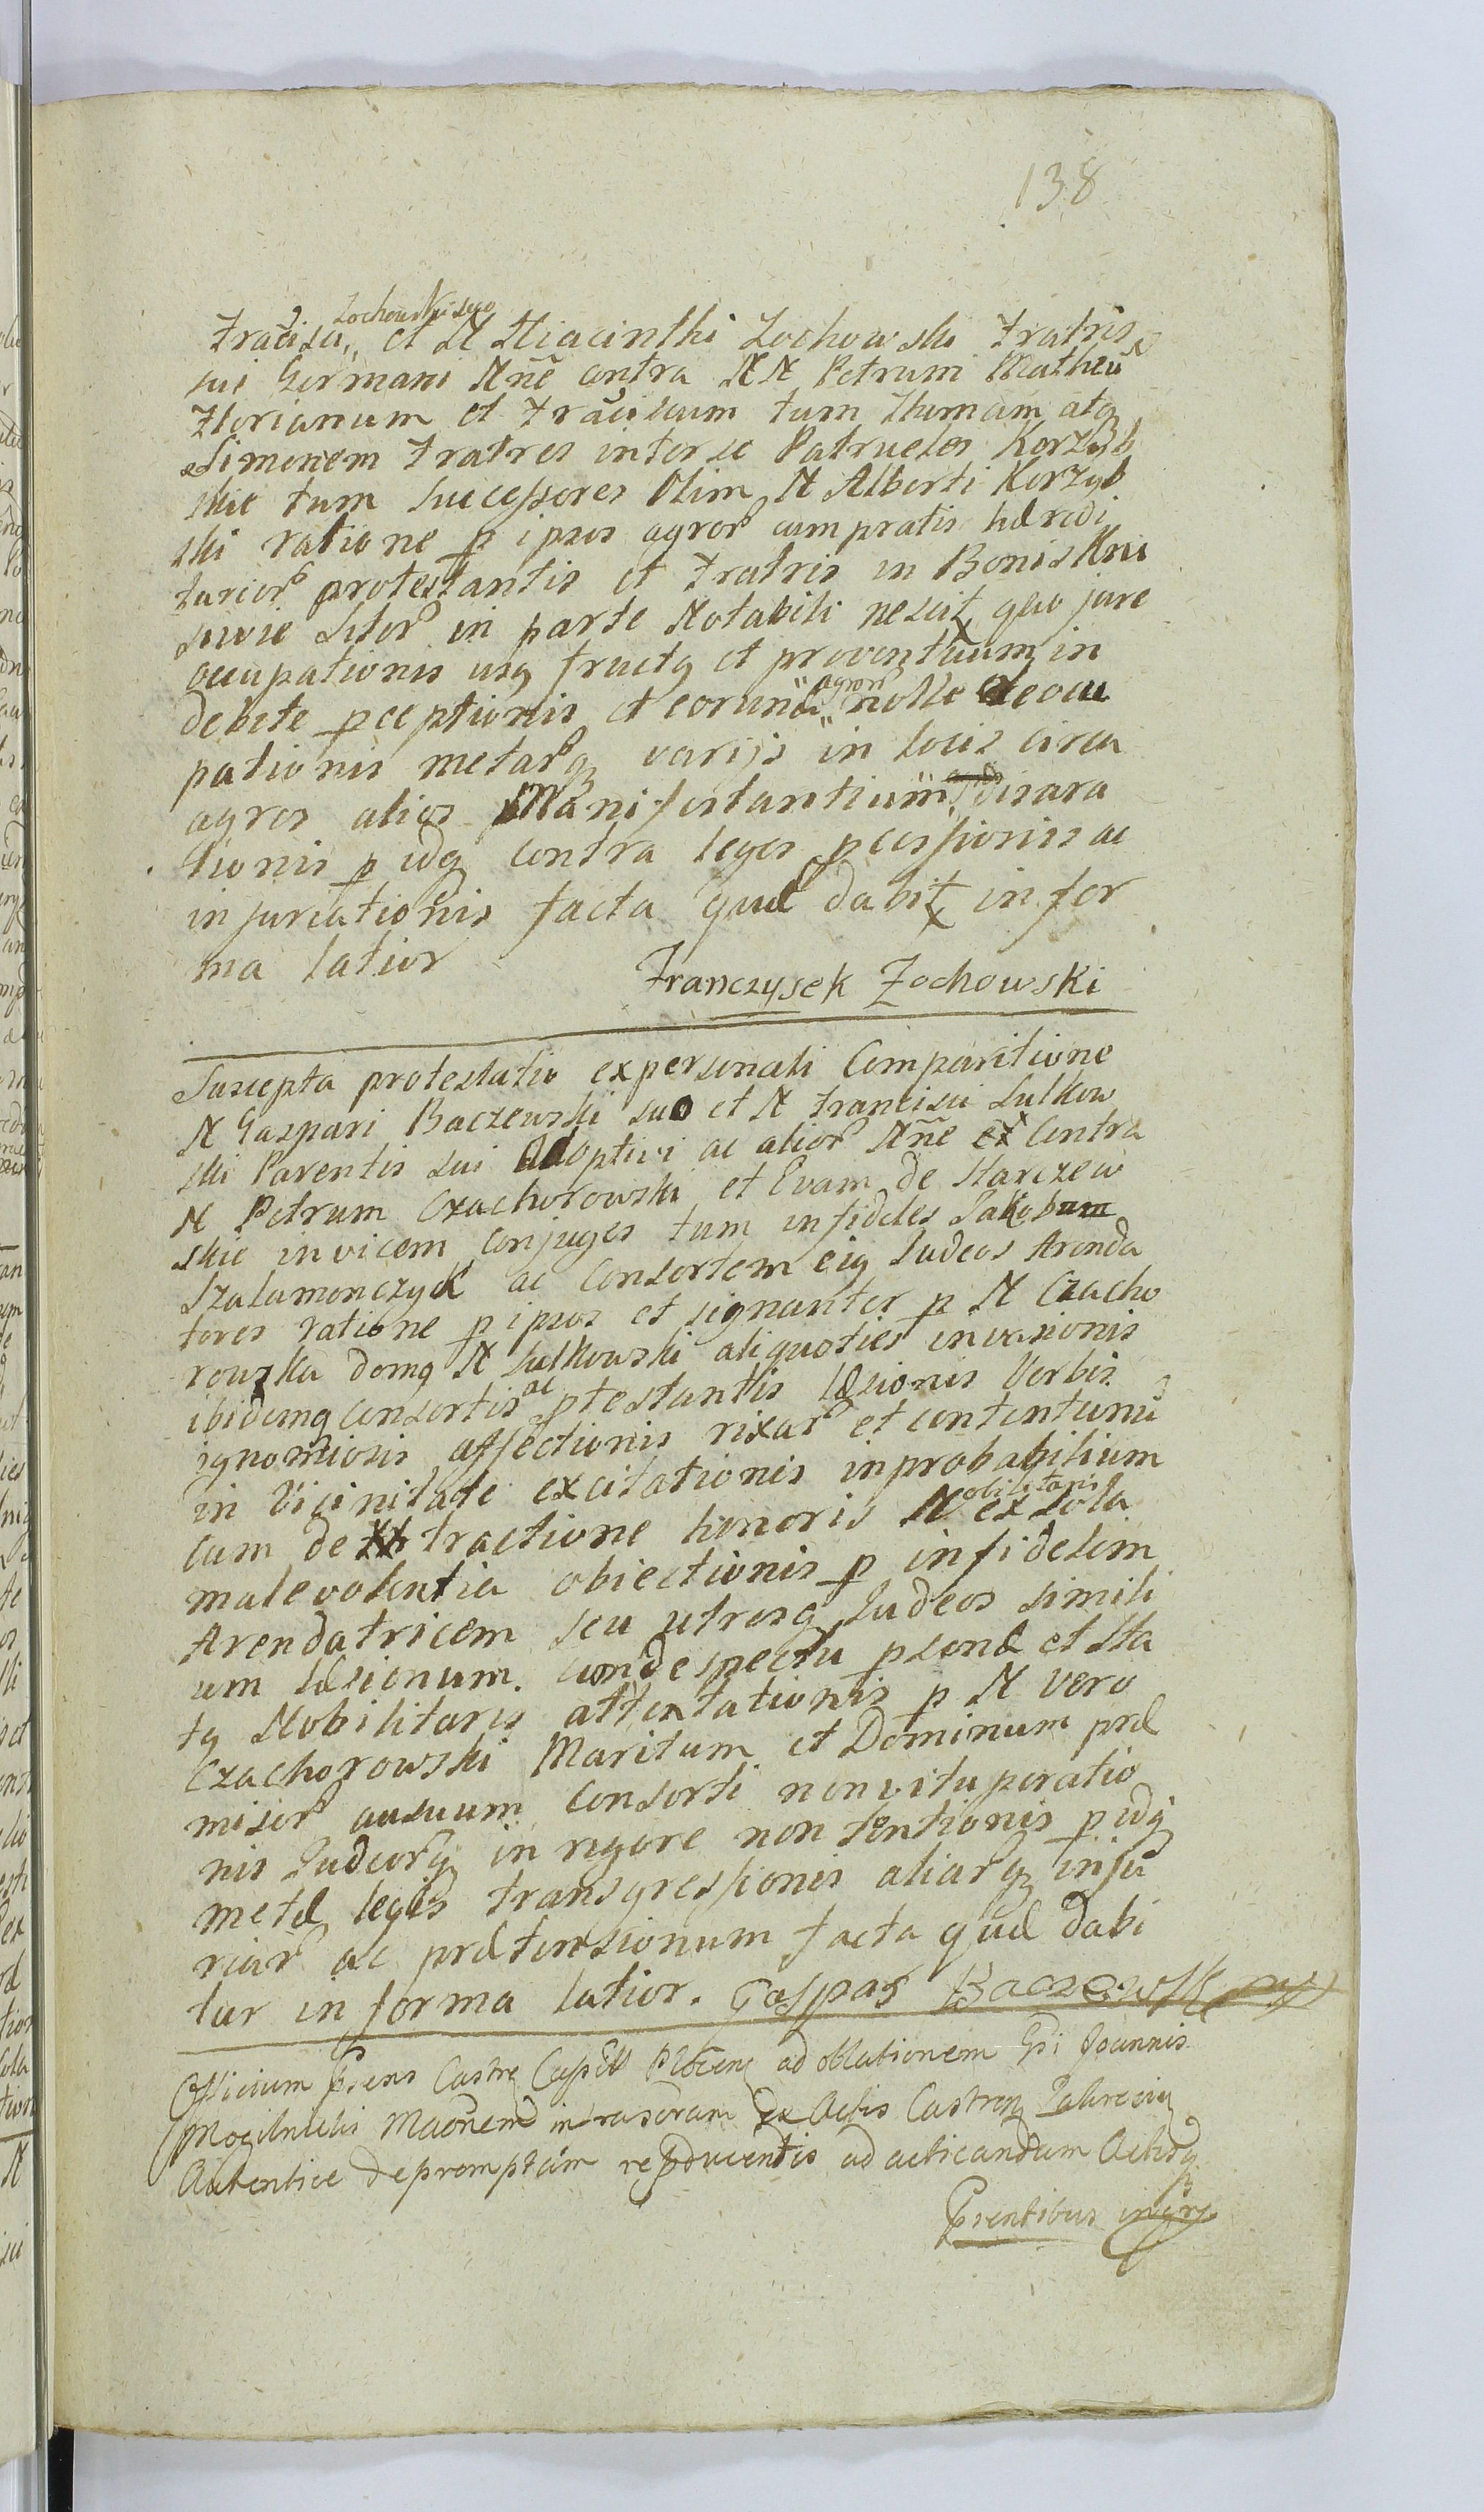 138
Zochowski suo
Fracisci et N Hiacinthi Zochowski Fratris
sui Germani Nne contra NN Petrum Matheu
Florianum et Fraciscum tum Thomam atq
Simonem Fratres inter se Patrueles Korzyb
skie tum successores Olim N Alberti Korzyb
ski ratione p ipsos agror cum pratis hæredi
tarior protestantis et Fratris in Bonis Kni
sitor in parte Notabili nescit quo jure
occupationis usq fructq et proventuumq in
agror
debite pceptionis et eorund nolle deoccu
pationis metarq varijs in locis circa
agros alios Manifestantium disara
tionis p idq contra leges pcessionis ac
injuriationis facta quæ dabit in for
ma latior
Franczysek Zochowski
Suscepta protestatio ex personali Comparitione
N Gaspari Baczewski suo et N Francisci Sulkow
ski Parentis sui Adoptivi ac alior Nne Contra
N Petrum Czachorowski et Evam de Starczew
skie invicem Conjuges tum infideles Jakobum
Szalamonczyk ac Consortem eiq Judeos Arenda
tores ratione p ipsos et signanter p N Czacho
rowska domq N Sulkowski aliquoties invasionis
ibidemq consortis ac ptestantis læsionis Verbis
ignomiosis affectionis rixar et contentionu
in Vicinitate excitationis inprobabilium
cum detractione honoris Nobilitaris ex sola
malevolentia obiectionis p infidelem
Arendatricem seu utrosq Judeos simili
um læsionum cum despectu psonæ et sta
tq Nobilitaris attentationis p N vero
Czachorowski Maritum et Dominum præ
misor ausuum Consorti non vituperatio
nis Judeorq in rigore non tentionis p idq
metæ legis transgressionis aliarq inju
riar ac prætensionum facta quæ dabi
tur in forma latior. Gaspar Baczewski
Officium Psens Castre Capit Plocen ad oblationem Gsi Joannis
Mogilnicki infrascram Ex Actis Castren
Autentice depromptam repducentis ad acticandum Actisq
Psentibus